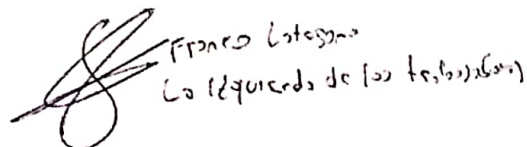 Franco Catagano
La Izquierda de los trabajadores